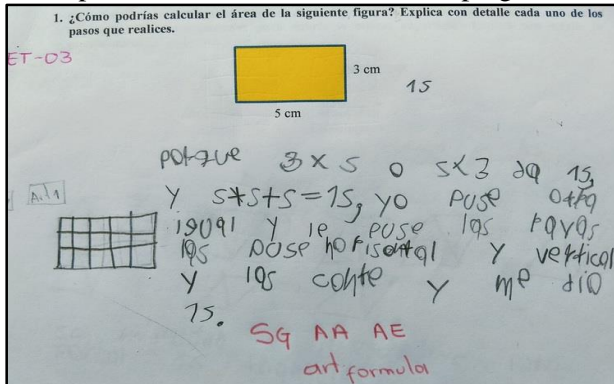 1. ¿Cómo podrías calcular el área de la siguiente figura? Explica con detalle cada uno de los
pasos que realices.
ET-03
3 cm
15
5 cm
porque 3 x 5 o 5x3 da 15,
y 5+5+5=15, yo puse otra
igual y le puse las rayas
las puse horisontal y vertical
y las conte y me dio
15.
SG AA AE
art formula